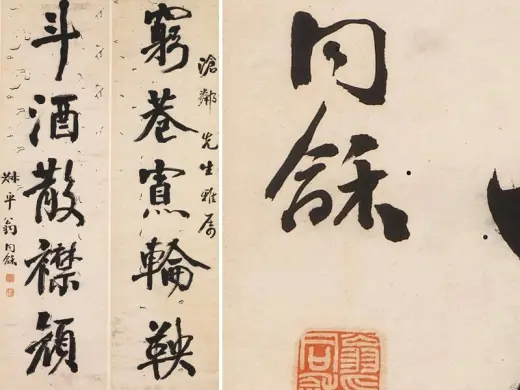 滄鄰先生雅屬
窮巷寡輪鞅
斗酒散襟顏
叔平翁同龢
同龢